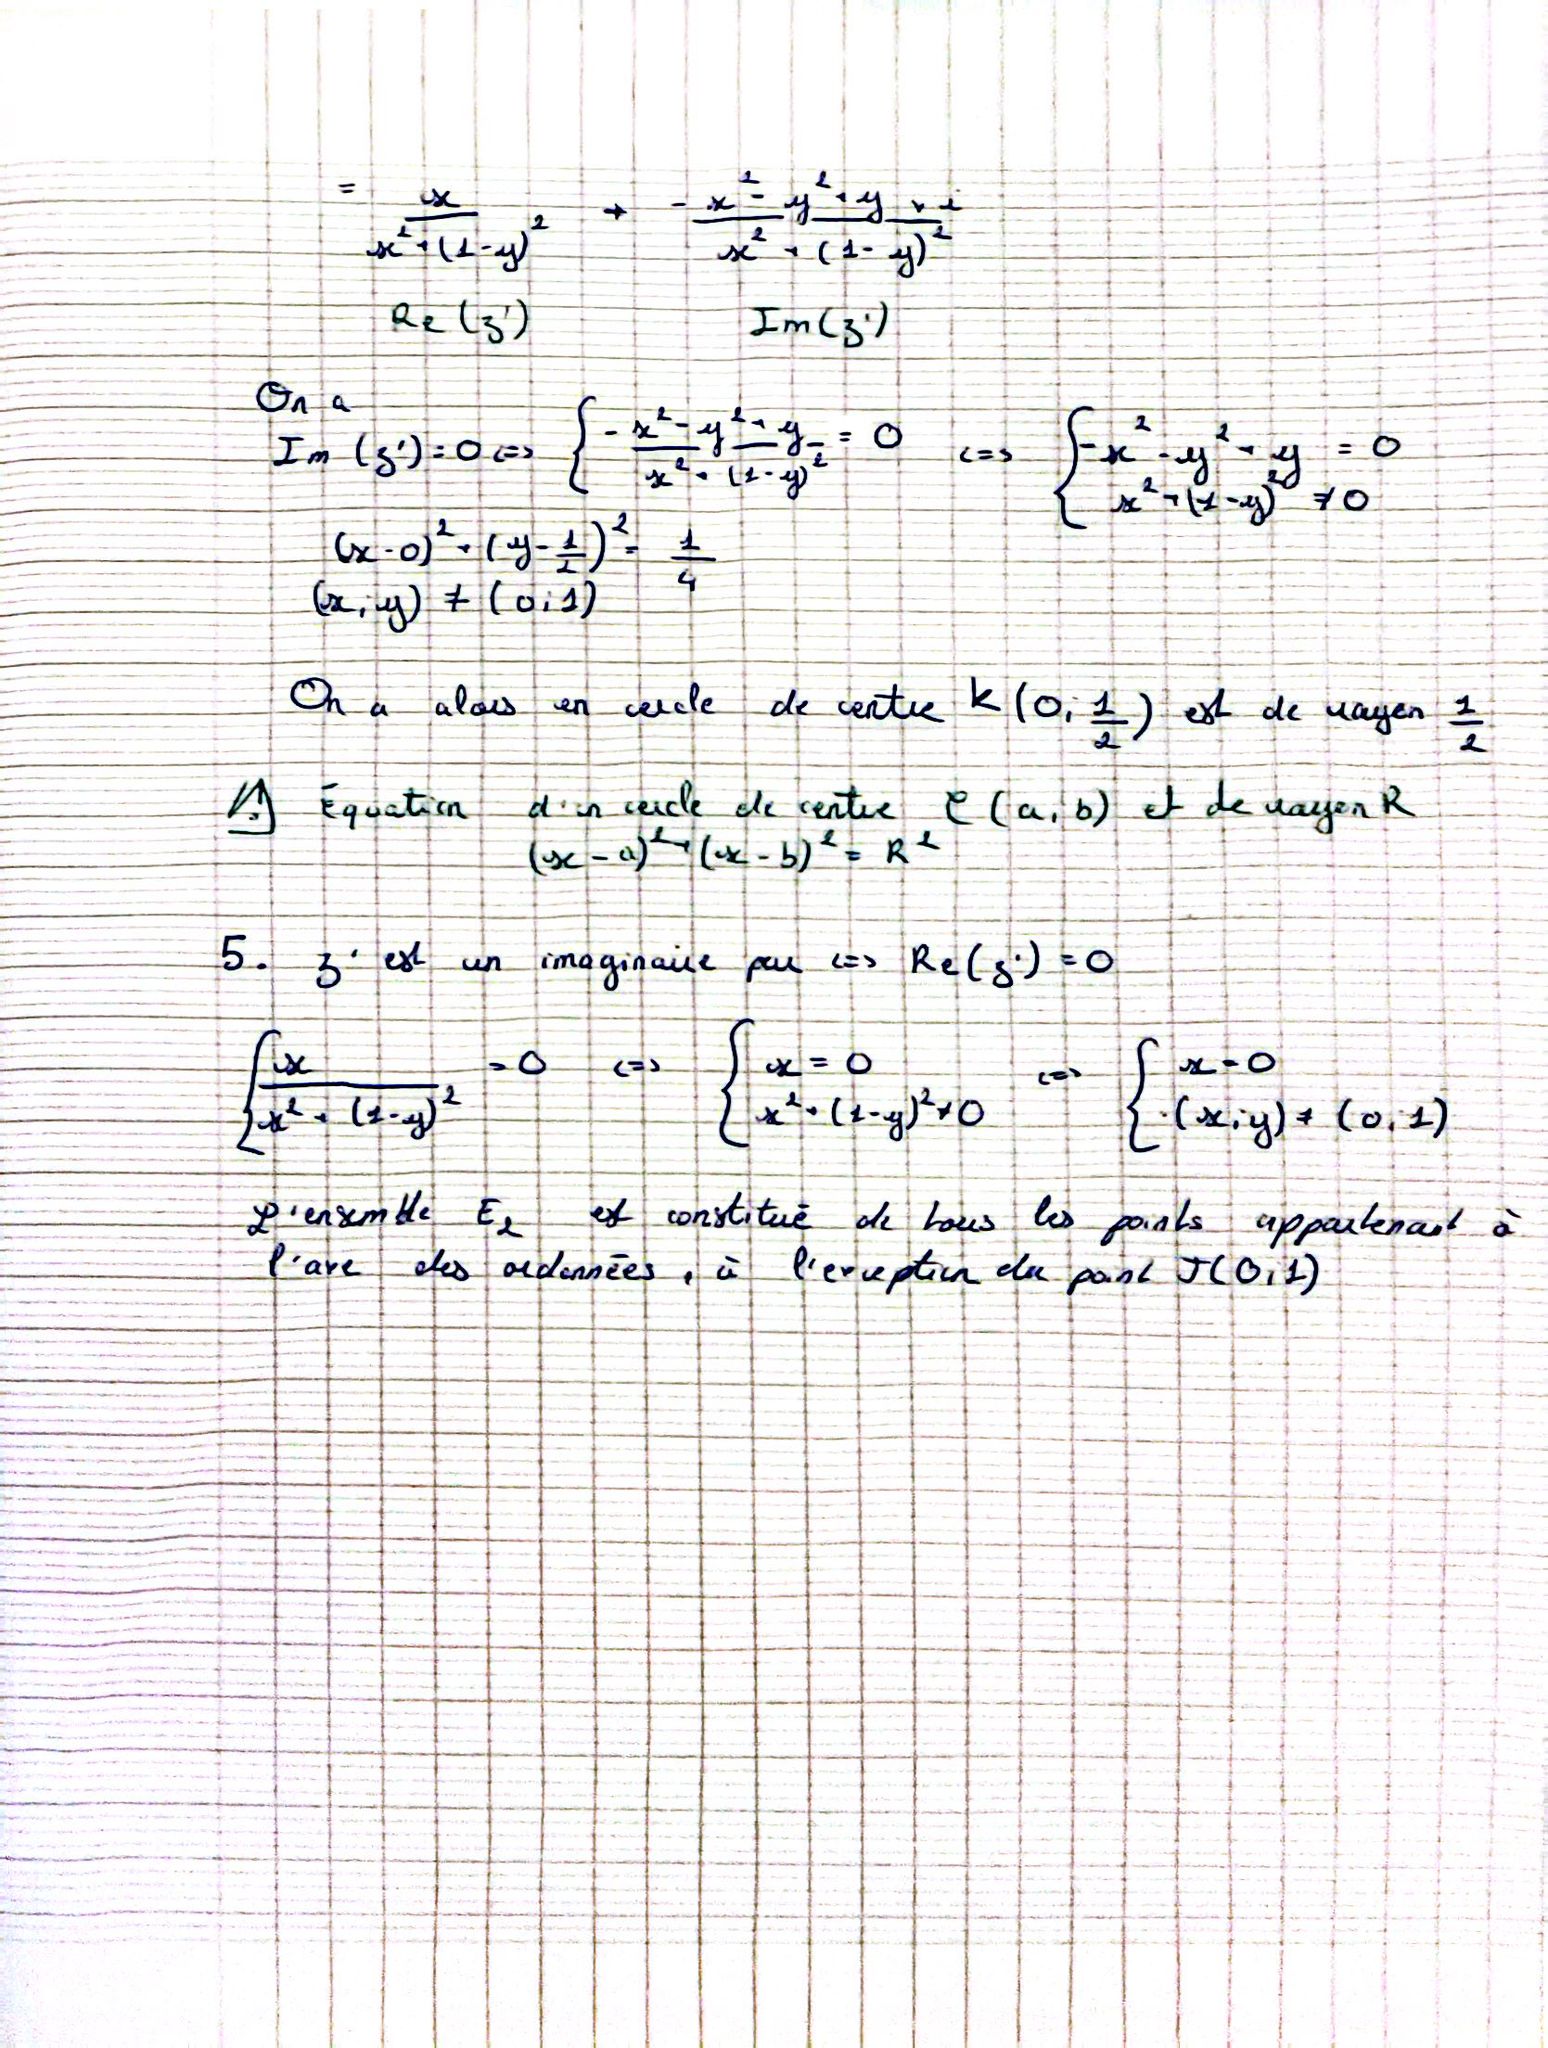 = x / (x² + (1-y)²) + (-x² - y² + y) / (x² + (1-y)²) × i
Re(z') Im(z')
On a
Im (z') = 0 <=> { (-x² - y² + y) / (x² + (1-y)²) = 0 <=> { -x² - y² + y = 0
x² + (1-y)² ≠ 0
(x-0)² + (y - 1/2)² = 1/4
(x;y) ≠ (0;1)
On a alors un cercle de centre K(0; 1/2) est de rayon 1/2
⚠ Équation d'un cercle de centre C(a,b) et de rayon R
(x-a)² + (x-b)² = R²
5. z' est un imaginaire pur <=> Re(z') = 0
{ x / (x² + (1-y)²) = 0 <=> { x = 0 <=> { x = 0
x² + (1-y)² ≠ 0 (x;y) ≠ (0;1)
L'ensemble E₂ est constitué de tous les points appartenant à
l'axe des ordonnées, à l'exception du point J(0;1)